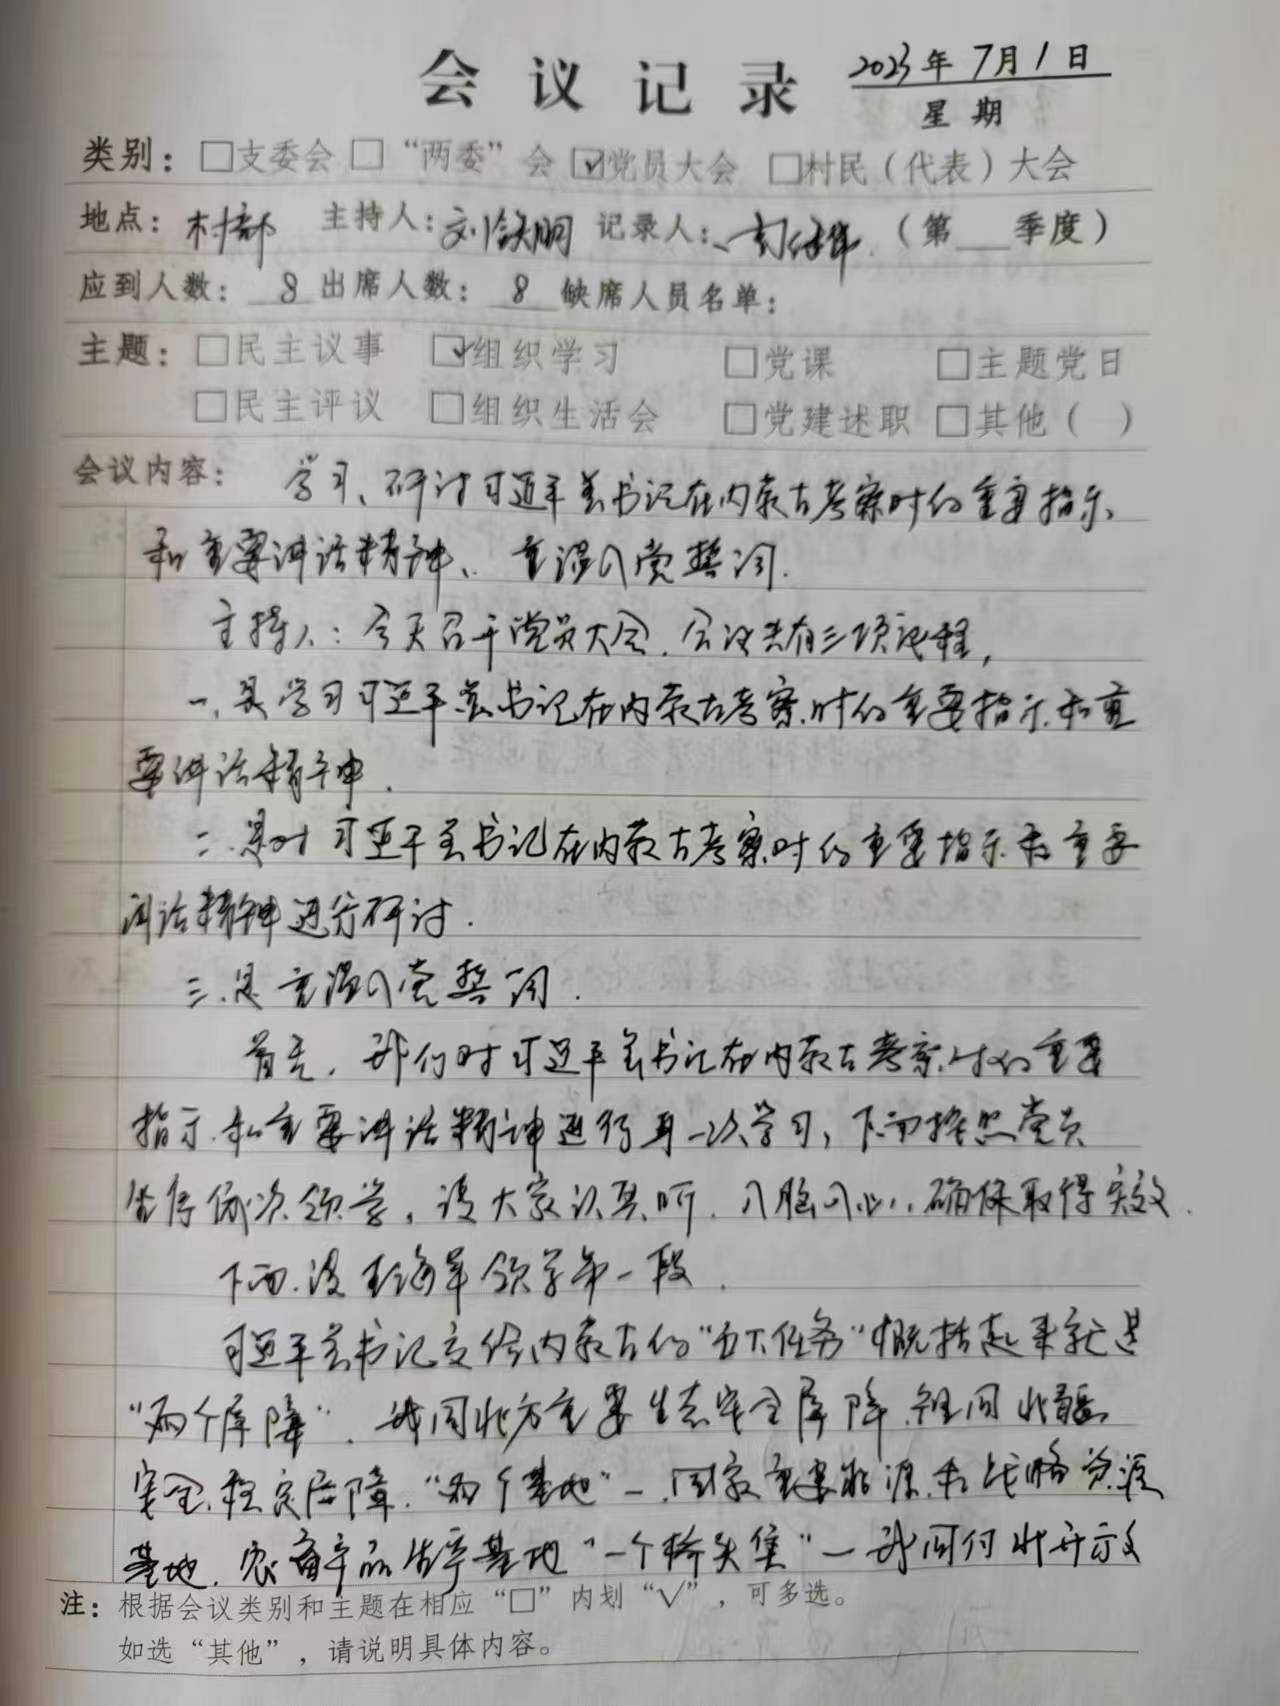 会议记录 2023年7月1日
星期
类别：□支委会 □“两委”会 ☑党员大会 □村民（代表）大会
地点：村部 主持人：刘铁明 记录人： （第 季度）
应到人数：8 出席人数：8 缺席人员名单：
主题：□民主议事 ☑组织学习 □党课 □主题党日
□民主评议 □组织生活会 □党建述职 □其他（ ）
会议内容： 学习、研讨习近平总书记在内蒙古考察时的重要指示
和重要讲话精神、重温入党誓词.
主持人：今天召开党员大会.会议共有三项议程,
一.是学习习近平总书记在内蒙古考察时的重要指示和重
要讲话精神.
二.是对习近平总书记在内蒙古考察时的重要指示和重要
讲话精神进行研讨.
三.是重温入党誓词.
首先，我们对习近平总书记在内蒙古考察时的重要
指示和重要讲话精神进行再一次学习，下面按照党员
坐序依次领学，请大家认真听.入脑入心，确保取得实效.
下面.请 海军领学第一段.
习近平总书记交给内蒙古的“五大任务”概括起来就是
“两个屏障”.我国北方重要生态安全屏障.祖国北疆
安全稳定屏障.“两个基地”—国家重要能源和战略资源
基地.农畜产品生产基地“一个桥头堡”—我国向北开放
注：根据会议类别和主题在相应“□”内划“√”，可多选。
如选“其他”，请说明具体内容。